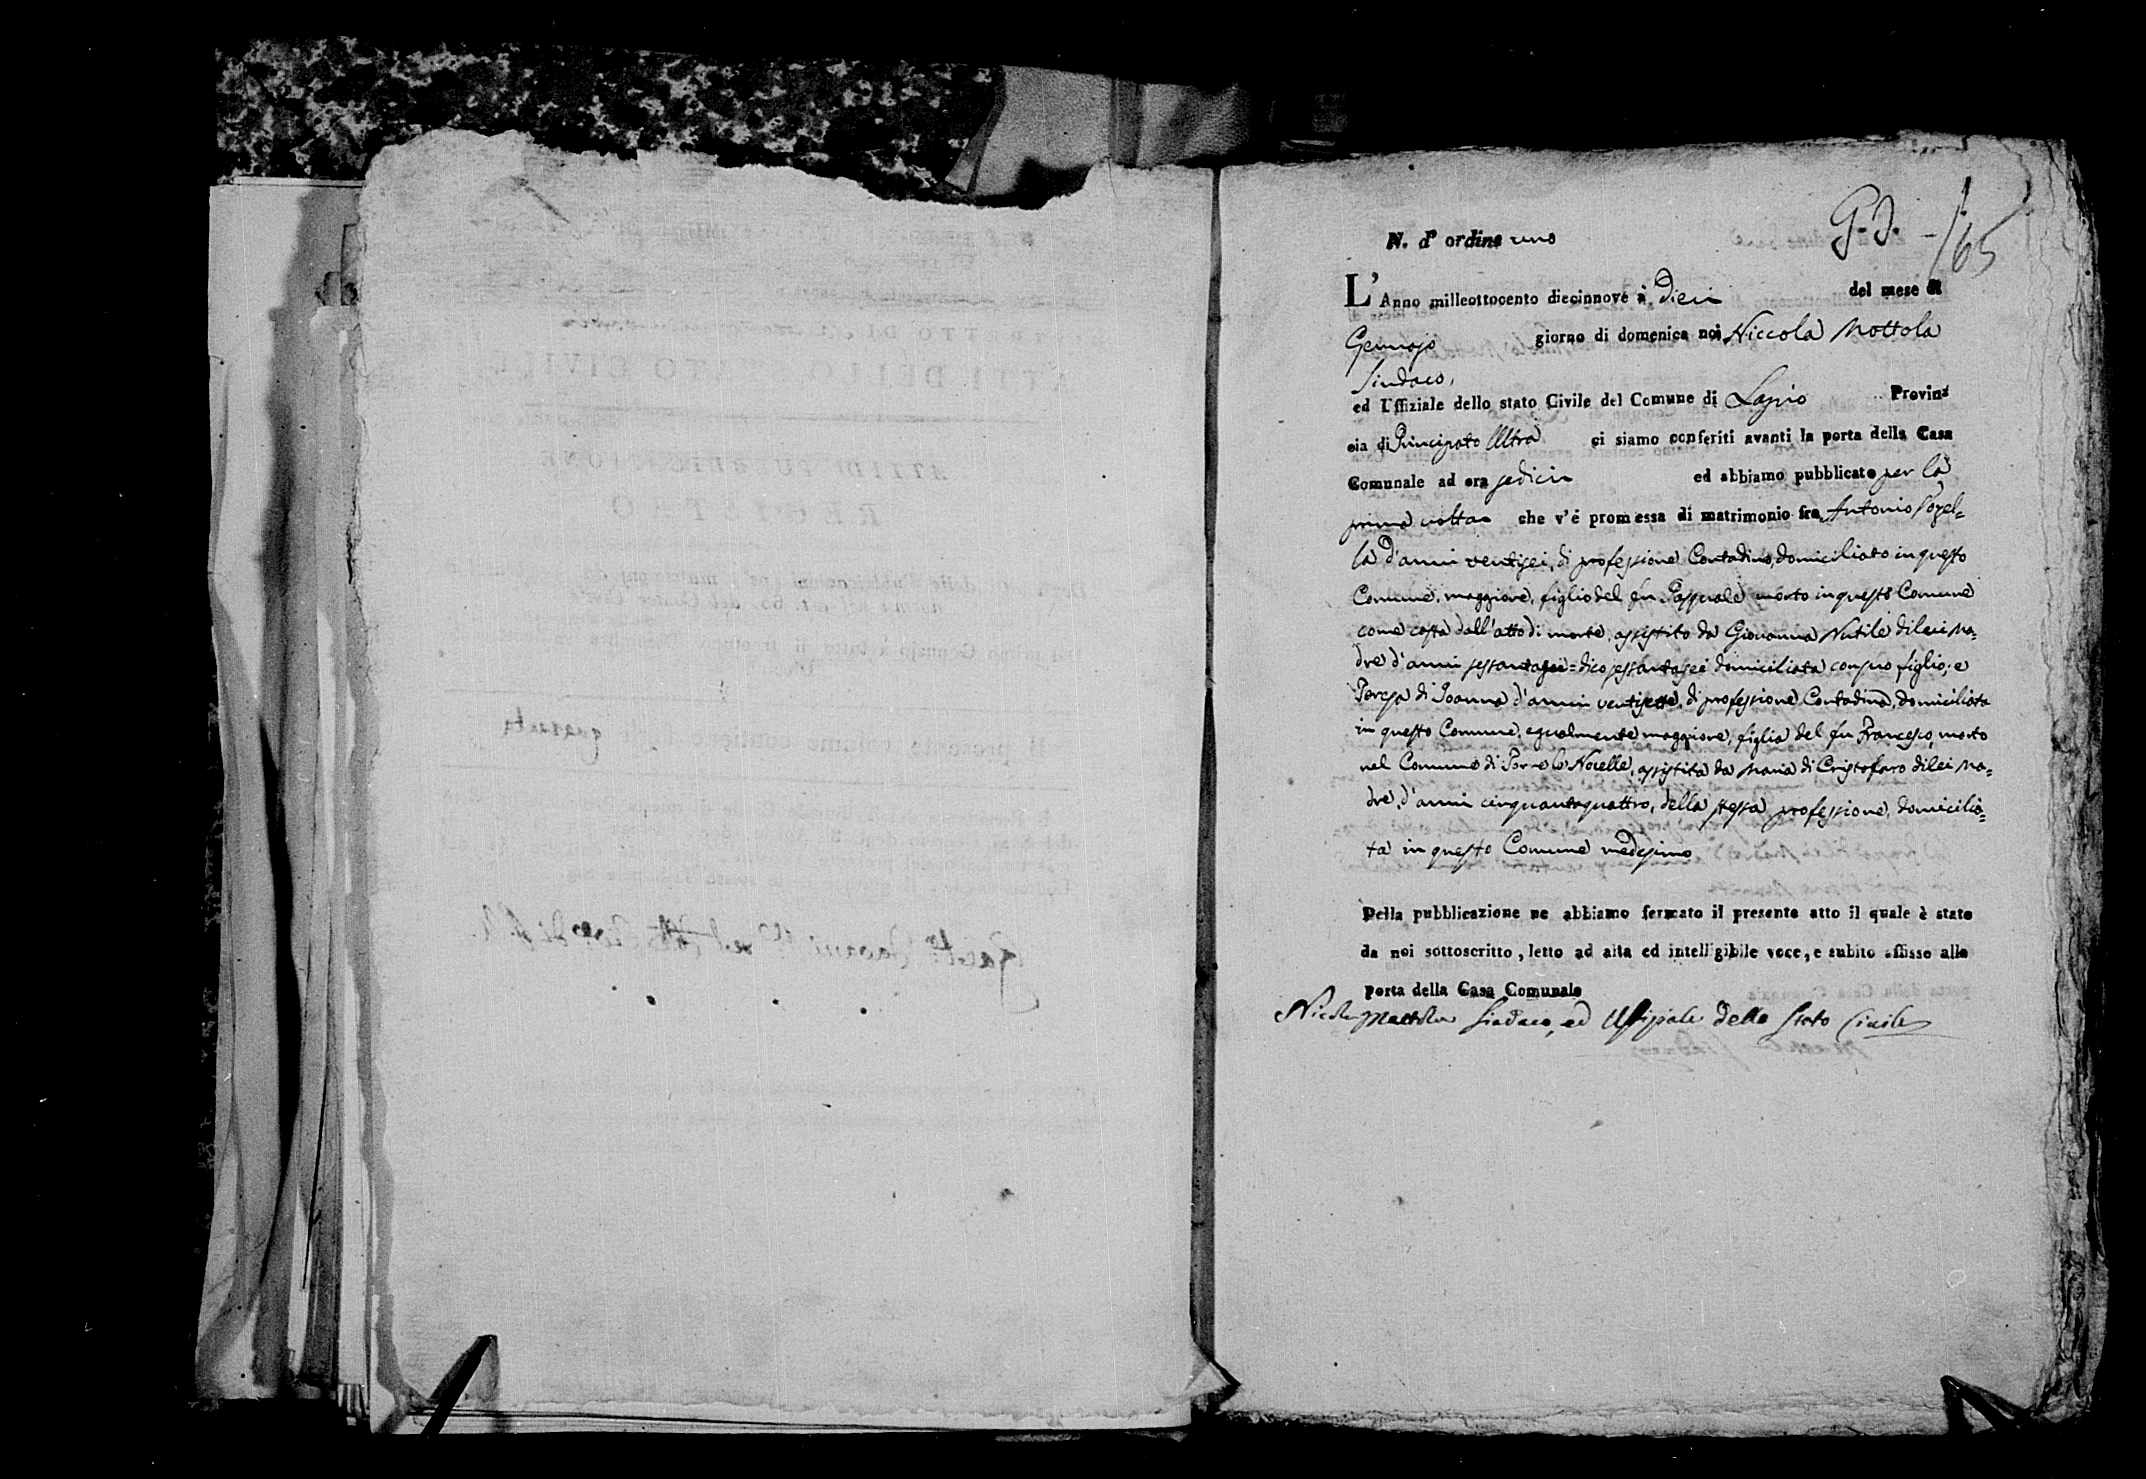 N. d' ordine uno
G. I. 1/65
L' Anno milleottocento diecinnove à dieci del mese di
Gennajo giorno di domenica noi Niccola Mottola
Sindaco,
ed Uffiziale dello stato Civile del Comune di Lapio Provin=
cia di Principato Ultra ci siamo conferiti avanti la porta della Casa
Comunale ad ora sedici ed abbiamo pubblicato per la
prima volta che v'é promessa di matrimonio fra Antonio
la d'anni ventisei, di professione Contadino, domiciliato in questo
Comune, maggiore, figlio del fu Pasquale morto in questo Comune
come costa dall'atto di morte, assistito da Giovanna Nutile di lui ma=
dre d'anni sessantasei = dico sessantasei domiciliata con suo figlio; e
Teresa di Joanna d'anni ventisette, di professione Contadina, domiciliata
in questo Comune, egualmente maggiore, figlia del fu Francesco, morto
nel Comune di Torre le Nocelle, assistita da Maria di Cristofaro di lei ma=
dre, d'anni cinquantaquattro, della stessa professione, domicilia=
ta in questo Comune medesimo
Della pubblicazione ne abbiamo formato il presente atto il quale è stato
da noi sottoscritto, letto ad alta ed intelligibile voce, e subito affisso alla
porta della Casa Comunale
Nicola Mottola Sindaco, ed Uffiziale dello Stato Civile